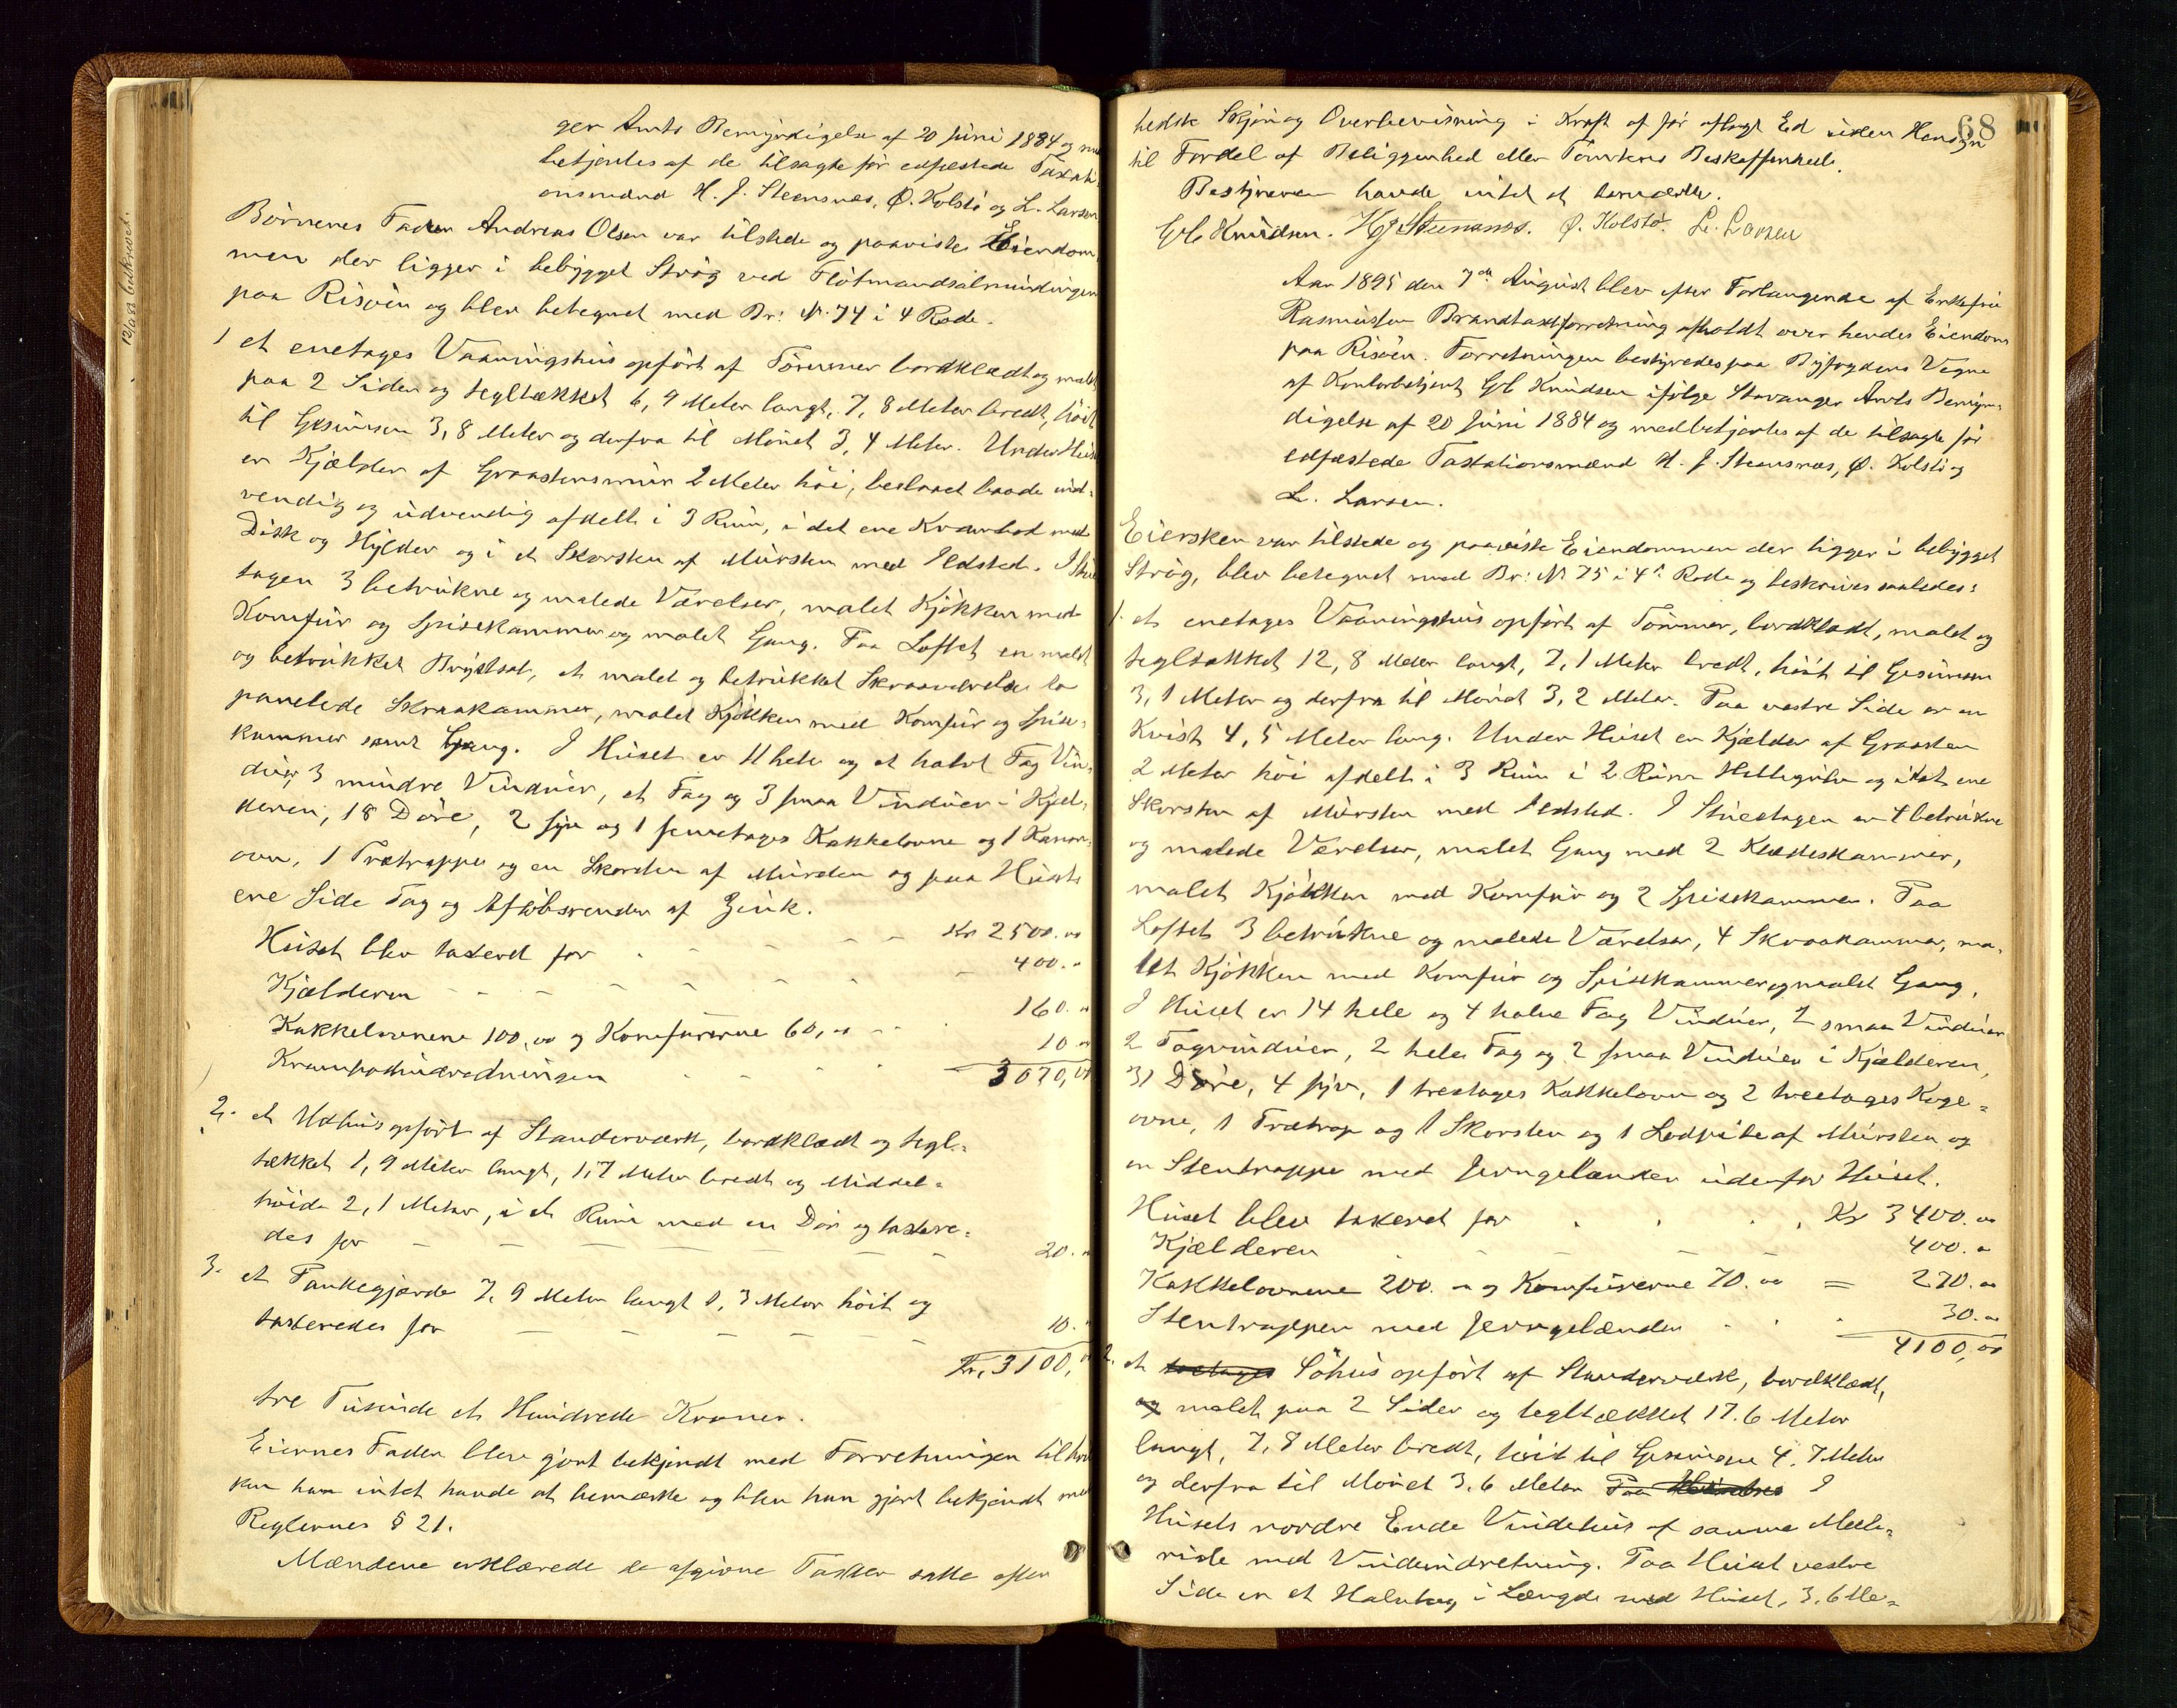 12/083 bekræft.
ger Amts Bemyndigelse af 20 Juni 1884 og med
betjentes af de tilsagte før edfæstede Taxati
onsmænd H. J. Steensnæs, Ø. Kolstø og L. Larsen
Børnenes Fader Andreas Olsen var tilstede og paaviste Eiendom
men der ligger i bebygget Strøg ved Fløtmandsalmindingen
paa Risøen og blev betegnet med Br: № 74 i 4 Rode.
1 et enetages Vaaningshus opført af Tømmer bordklædt og malet
paa 2 Sider og tegltækket 6,9 Meter langt, 7,8 Meter bredt, høit
til Gesimsen 3,8 Meter og derfra til Mønet 3,4 Meter. Under Huset
er Kjælder af Graastensmur 2 Meter høi, beslaaet baade ind=
vendig og udvendig afdelt i 3 Rum, i det ene Krambod med
Disk og Hylder og i et Skorsten af Mursten med Ildsted. I Stue
tagen 3 betrukne og malede Værelser, malet Kjøkken med
Komfur og Spisekammer og malet Gang. Paa Loftet en malet
og betrukket Brystsal, et malet og betrukket Skraaværelse to
panelede Skraakammer, malet Kjøkken med Komfur og Spise=
kammer samt Gang. I Huset er 11 hele og et halvt Fag Vin=
duer, 3 mindre Vinduer, et Fag og 3 smaa Vinduer i Kjæl=
deren, 18 Døre, 2 fyr og 1 femetages Kakkelovne og 1 Kanon=
ovn, 1 Trætrappe og en Skorsten af Mursten og paa Husets
ene Side Tag og Afløbsrender af Zink.
Huset blev taxeret for Kr 2500.00
Kjælderen 400.00
Kakkelovnene 100,00 og Komfurerne 60,00 160.00
Krambodindredningen 10.00
3070,00
2. et Udhus opført af Standerværk, bordklædt og tegl=
tækket 1,9 Meter langt, 1,7 Meter bredt og Middel=
høide 2,1 Meter, i et Rum med en Dør og taxere=
des for 20.00
3. et Plankegjærde 7,9 Meter langt 1,3 Meter høit og
taxeredes for 10.00
Kr. 3100,00
tre Tusinde et Hundrede Kroner.
Eiernes Fader blev gjort bekjendt med Forretningen til hvil
ken han intet havde at bemærke og blev han gjort bekjendt med
Reglernes § 21.
Mændene erklærede de afgivne Taxter satte efter
68
bedste Skjøn og Overbevisning i Kraft af før aflagt Ed uden Hensyn
til Fordel af Beliggenhed eller Tomtens Beskaffenhed.
Bestyreren havde intet at bemærke.
G C Knudsen. H J Steensnæs. Ø. Kolstø. L. Larsen
Aar 1895 den 7de August blev efter Forlangende af Enkefru
Rasmussen Brandtaxtforretning afholdt over hendes Eiendom
paa Risøen. Forretningen bestyredes paa Byfogdens Vegne
af Kontorbetjent G C Knudsen ifølge Stavanger Amts Bemyn=
digelse af 20 Juni 1884 og medbetjentes af de tilsagte før
edfæstede Taxtationsmænd H. J. Steensnæs, Ø. Kolstø og
L. Larsen.
Eiersken var tilstede og paaviste Eiendommen der ligger i bebygget
Strøg, blev betegnet med Br: № 75 i 4de Rode og beskrives saaledes:
1. et enetages Vaaningshus opført af Tømmer, bordklædt, malet og
tegltækket 12,8 Meter langt, 7,1 Meter bredt, høit til Gesimsen
3,1 Meter og derfra til Mønet 3,2 Meter. Paa vestre Side er en
Kvist 4,5 Meter lang. Under Huset er Kjælder af Graasten
2 Meter høi afdelt i 3 Rum i 2 Rum Hellegulv og i det ene
Skorsten af Mursten med Ildsted. I Stueetagen er 4 betrukne
og malede Værelser, malet Gang med 2 Klædeskammer,
malet Kjøkken med Komfur og 2 Spisekammer. Paa
Loftet 3 betrukne og malede Værelser, 4 Skraakammer, ma=
let Kjøkken med Komfur og Spisekammer og malet Gang.
I Huset er 14 hele og 4 halve Fag Vinduer, 2 smaa Vinduer
2 Tagvinduer, 2 hele Fag og 2 smaa Vinduer i Kjælderen,
31 Døre, 4 fyr, 1 treetages Kakkelovn og 2 treetages Koge=
ovne, 1 Trætrap og 1 Skorsten og 1 Lodpibe af Mursten og
en Stentrappe med Jerngelænder udenfor Huset.
Huset blev taxeret for Kr 3400.00
Kjælderen 400.00
Kakkelovnene 200.00 og Komfurerne 70.00 = 270.00
Stentrappen med Jerngelænder 30.00
4100,00
2. et toetages Søhus opført af Standerværk, bordklædt,
og malet paa 2 Sider og tegltækket 17.6 Meter
langt, 7,8 Meter bredt, høit til Gesimsen 4.7 Meter
og derfra til Mønet 3.6 Meter Paa I
Husets nordre Ende Vindehus af samme Mate=
riale med Vindeindretning. Paa Huset vestre
Side er et Halvtag i Længde med Huset, 3.6 Me=